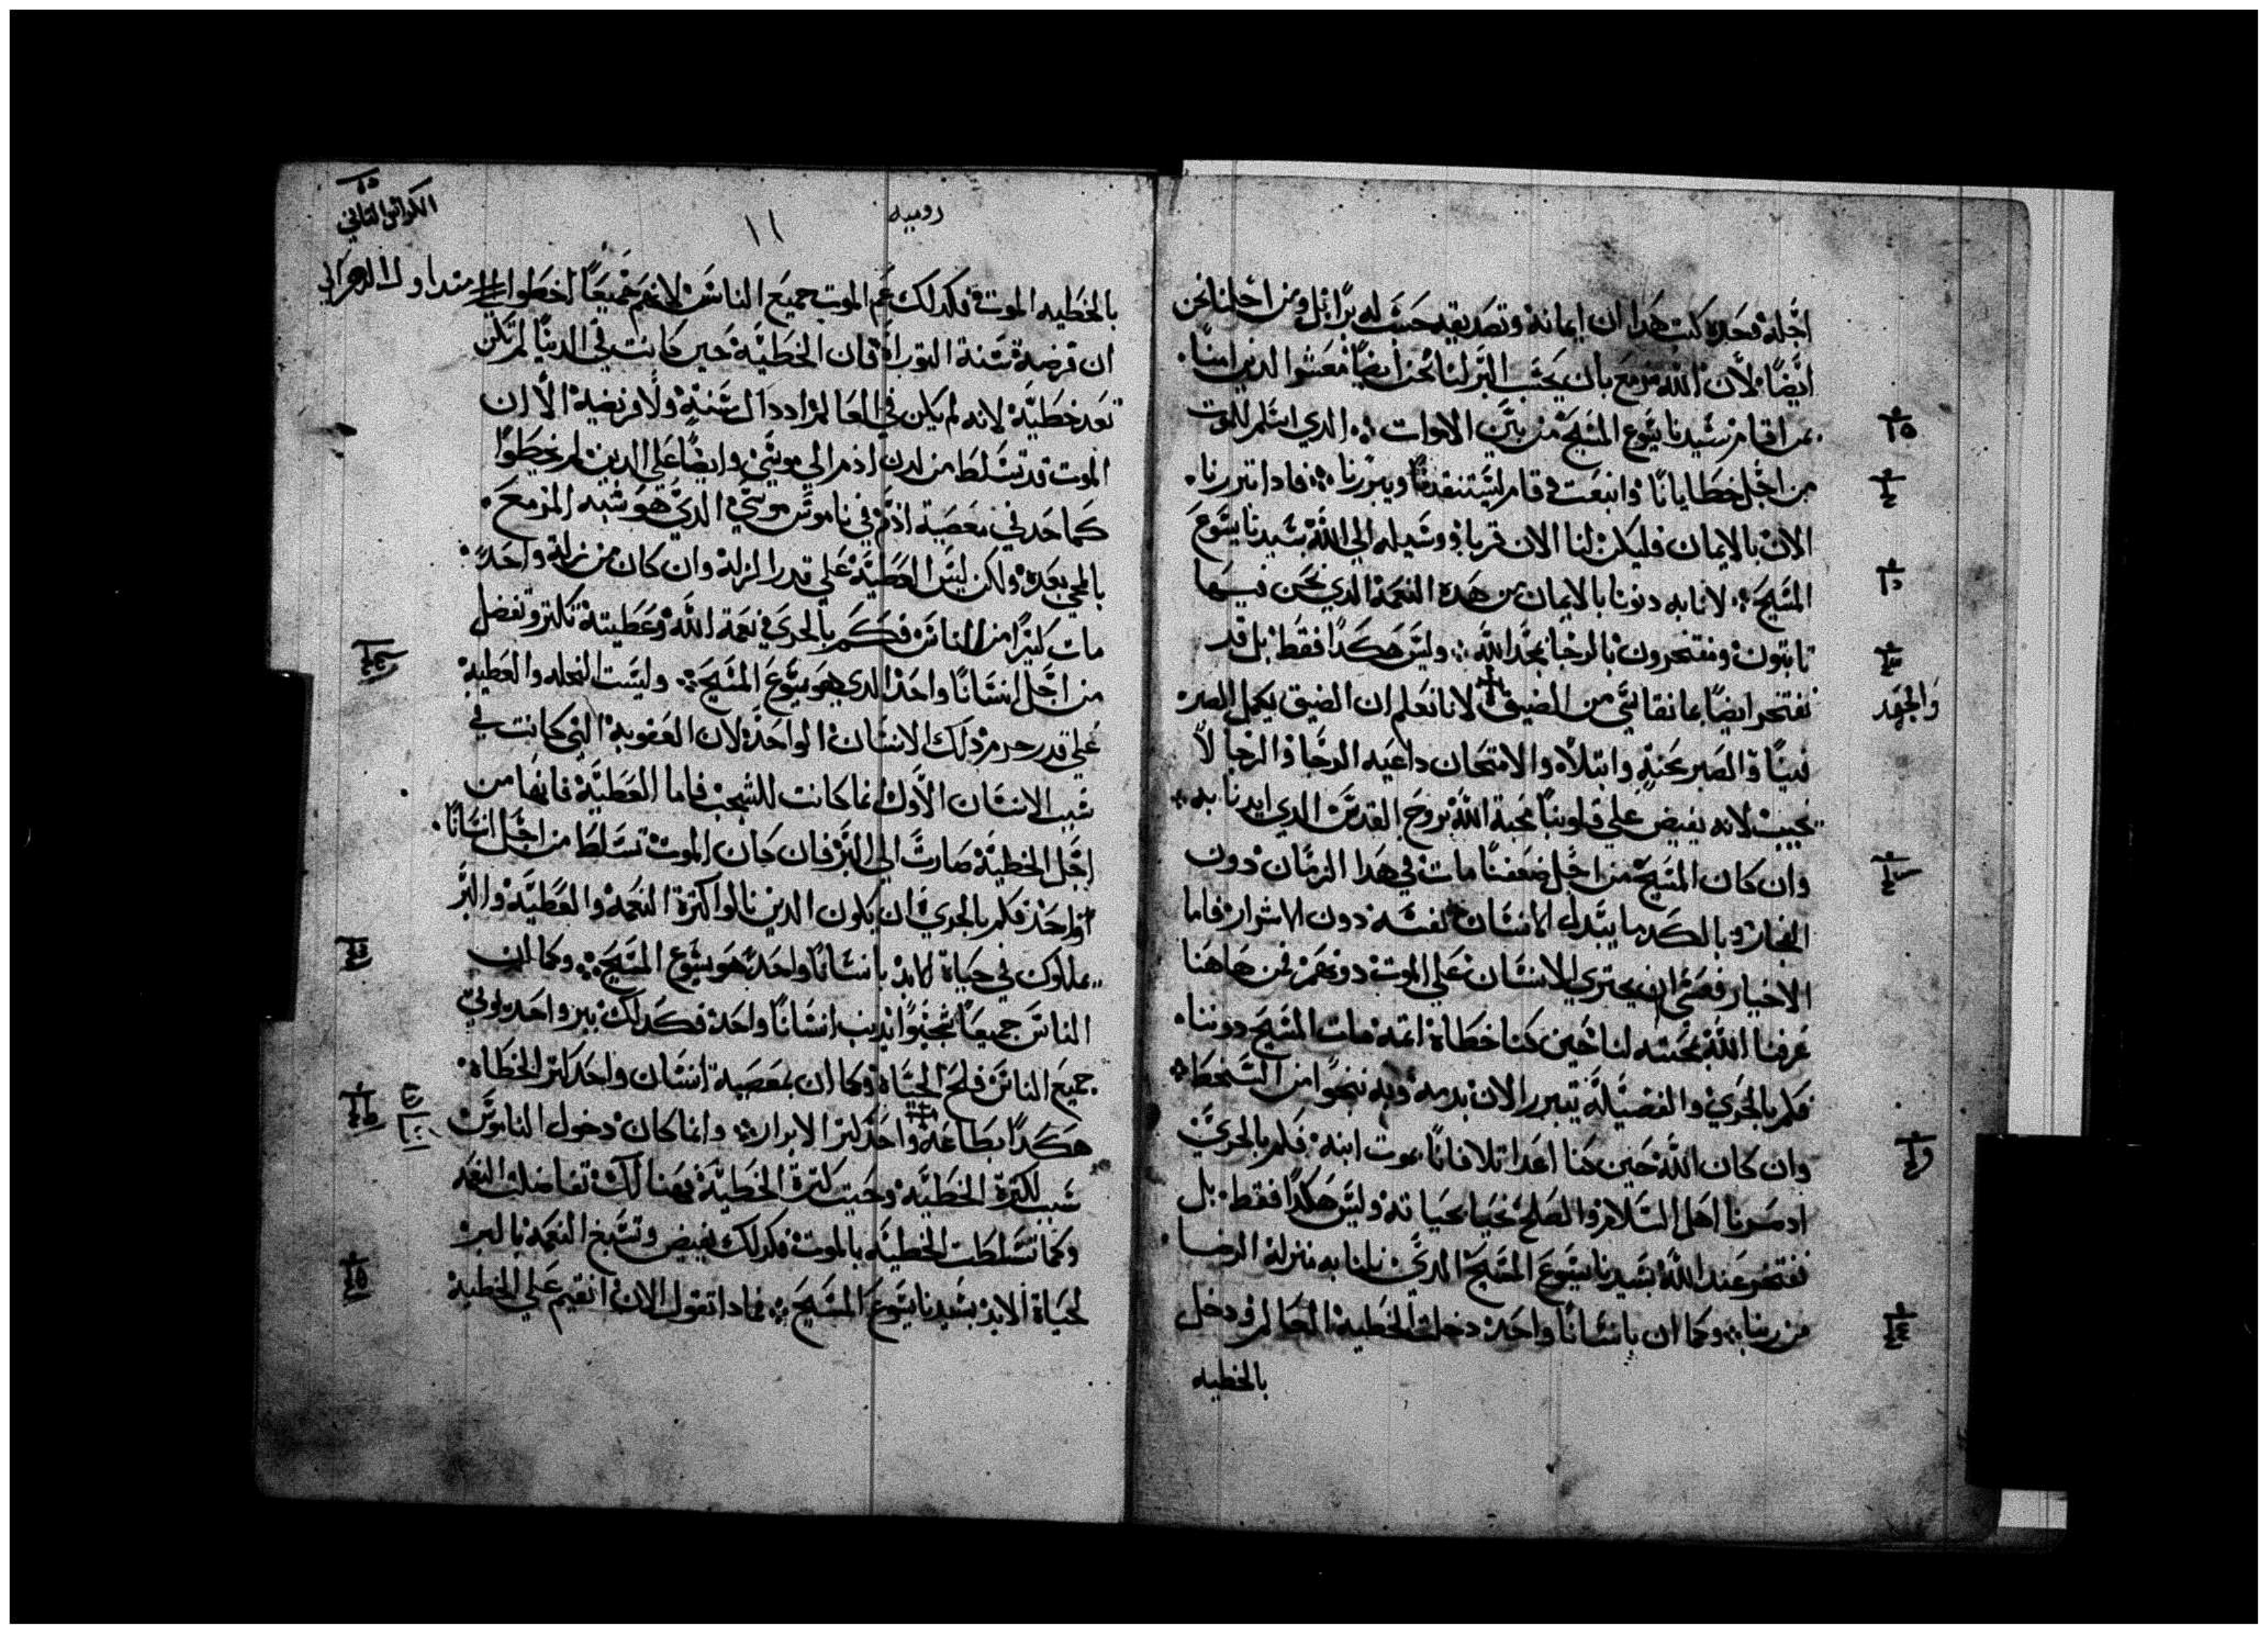 اجله وحده كتب هدا ان ايمانه وتصديقه حسب له برا بل ومن اجلنا نحن
ايضا لان الله مزمع بان يحسب البر لنا نحن ايضا معشر الدين امنا
بمن اقام سيدنا يسوع المسيح من بين الاموات الدي اسلم للموت
من اجل خطايانا وانبعت قام ويبررنا فادا تبررنا
الان بالايمان فليكن لنا الان وسيله الي الله سيدنا يسوع
المسيح لانا به دنونا بالايمان من هده النعمه الدي نحن فيها
تابتون ونفتخر بالرجا بمجد الله وليس هكدا فقط بل قد
نفتخر ايضا بما نقاسي من الضيق لانا نعلم ان الضيق يكمل الصبر
والجهد
فينا والصبر محنه وابتلاه والامتحان داعيه الرجا والرجا لا
يخيب لانه يفيض علي قلوبنا محبة الله بروح القدس الدي ايدنا به
وان كان المسيح من اجل ضعفنا مات في هدا الزمان دون
الفجار وبالكد ما يبدل الانسان نفسه دون الاشرار فاما
الاخيار فعسي ان يجتري الانسان علي الموت دونهم نحن هاهنا
عرفنا الله محبته لنا حين كنا خطاة اتمه مات المسيح دوننا
فكم بالحري والفضيله نتبرر الان بدمه وبه ننجوا من السخط
وان كان الله حين كنا اعدا تلافانا بموت ابنه فكم بالحري
اد صرنا اهل السلام والصلح نحيا بحياته وليس هكدا فقط بل
نفتخر عند الله بسيدنا يسوع المسيح الدي نلنا به منزلة الرضا
من ربنا وكما ان بانسانا واحد دخلت الخطيه العالم ودخل
بالخطيه
الكراس التاني
روميه
١١
بالخطيه الموت فكدلك عم الموت جميع الناس لانهم جميعا اخطوا
ان فرضية سنة التوراة فان الخطية حين كانت في الدنيا لم تكن
تعد خطية لانه لم يكن في العالم اد داك سنة ولا فريضة الا ان
الموت قد تسلط من لدن ادم الي موسي وايضا علي الدين لم يخطوا
كما حدث في معصية ادم في ناموس موسي الدي هو شبه المزمع
بالمجي بعده ولكن ليس العطية علي قدر الزلة وان كان من زلة واحد
مات كتيرا من الناس فكم بالحري نعمة الله وعطيته تكتر وتفضل
من اجل انسانا واحد الدي هو يسوع المسيح وليست النحله والعطيه
علي قدر جرم دلك الانسان الواحد لان العقوبه التي كانت في
سبب الانسان الاول انما كانت للشجب فاما العطية فانها من
اجل الخطية صارت الي البر فان كان الموت تسلط من اجل انسانا
واحد فكم بالحري ان يكون الدين نالوا كترة النعمه والعطية والبر
يملكون في حياة الابد بانسانا واحد هو يسوع المسيح وكما ان
الناس جميعا شجبوا بدنب انسانا واحد فكدلك ببر واحد يوتي
جميع الناس فلح الحياة وكما ان بمعصية انسان واحد كتر الخطاه
هكدا بطاعة واحد كتر الابرار وانما كان دخول الناموس
سبب لكترة الخطيه وحيت كترة الخطية فهنالك تفاضلت النعمه
وكما تسلطت الخطيه بالموت فكدلك يفيض وتسبغ النعمة بالبر
لحياة الابد بسيدنا يسوع المسيح فمادا نقول الان انقيم علي الخطيه